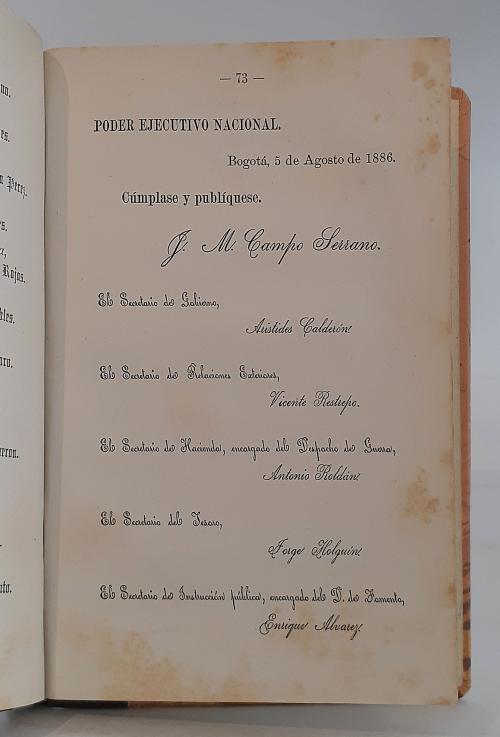 no.
es.
n Perez.
es.
z,
Rojas.
bles.
aro.
eron.
uto.
— 73 —
PODER EJECUTIVO NACIONAL.
Bogotá, 5 de Agosto de 1886.
Cúmplase y publíquese.
J. M. Campo Serrano.
El Secretario de Gobierno,
Aristides Calderón
El Secretario de Relaciones Exteriores,
Vicente Restrepo.
El Secretario de Hacienda, encargado del Despacho de Guerra,
Antonio Roldán
El Secretario del Tesoro,
Jorge Holguín
El Secretario de Instrucción pública, encargado del D. de Fomento,
Enrique Alvarez.